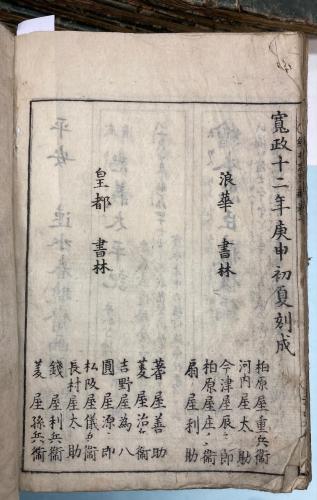 寛政十二年庚申初夏刻成
浪華 書林
柏原屋重兵衛
河内屋太助
今津屋辰三郎
柏原屋庄兵衛
扇屋利助
皇都 書林
蓍屋善助
菱屋治兵衛
吉野屋為八
圓屋源八郎
松阪屋儀兵衛
長村屋太助
錢屋利兵衛
菱屋孫兵衛